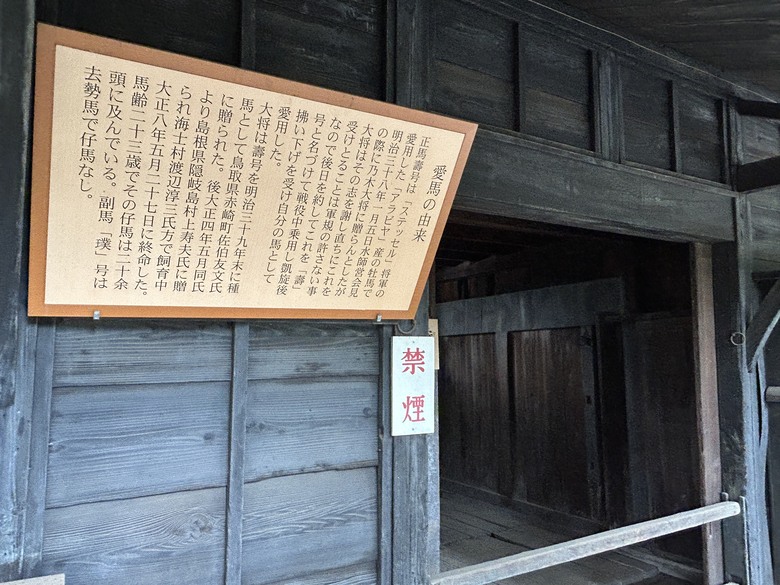 愛馬の由来
正馬壽号は「ステッセル」将軍の
愛用した「アラビヤ」産の牡馬で
明治三十八年一月五日水師営会見
の際に乃木大将に贈らんとしたが
大将はその志を謝し直ちにこれを
受けとることは軍規の許さない事
なので後日を約してこれを「壽」
号と名づけて戦役中乗用し凱旋後
拂い下げを受け自分の馬として
愛用した。
大将は壽号を明治三十九年末に種
馬として鳥取県赤崎町佐伯友文氏
に贈られた。後大正四年五月同氏
より島根県隠岐島村上寿夫氏に贈
られ海士村渡辺淳三氏方で飼育中
大正八年五月二十七日に終命した。
馬齢二十三歳でその仔馬は二十余
頭に及んでいる。副馬「璞」号は
去勢馬で仔馬なし。
禁煙